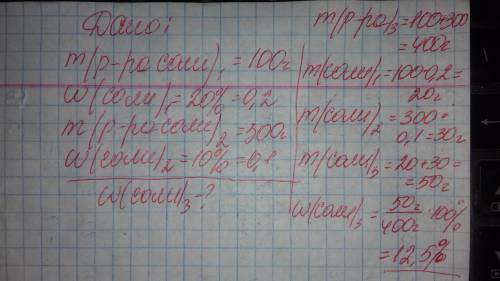 Дано:
m(р-ра соли)₁ = 100г
w(соли)₁ = 20% = 0,2
m(р-ра соли)₂ = 300г
w(соли)₂ = 10% = 0,1
w(соли)₃ - ?
m(р-ра)₃ = 100+300
= 400г
m(соли)₁ = 100·0,2 =
20г
m(соли)₂ = 300·
0,1 = 30г
m(соли)₃ = 20+30 =
= 50г
w(соли)₃ = 50г/400г · 100%
= 12,5%